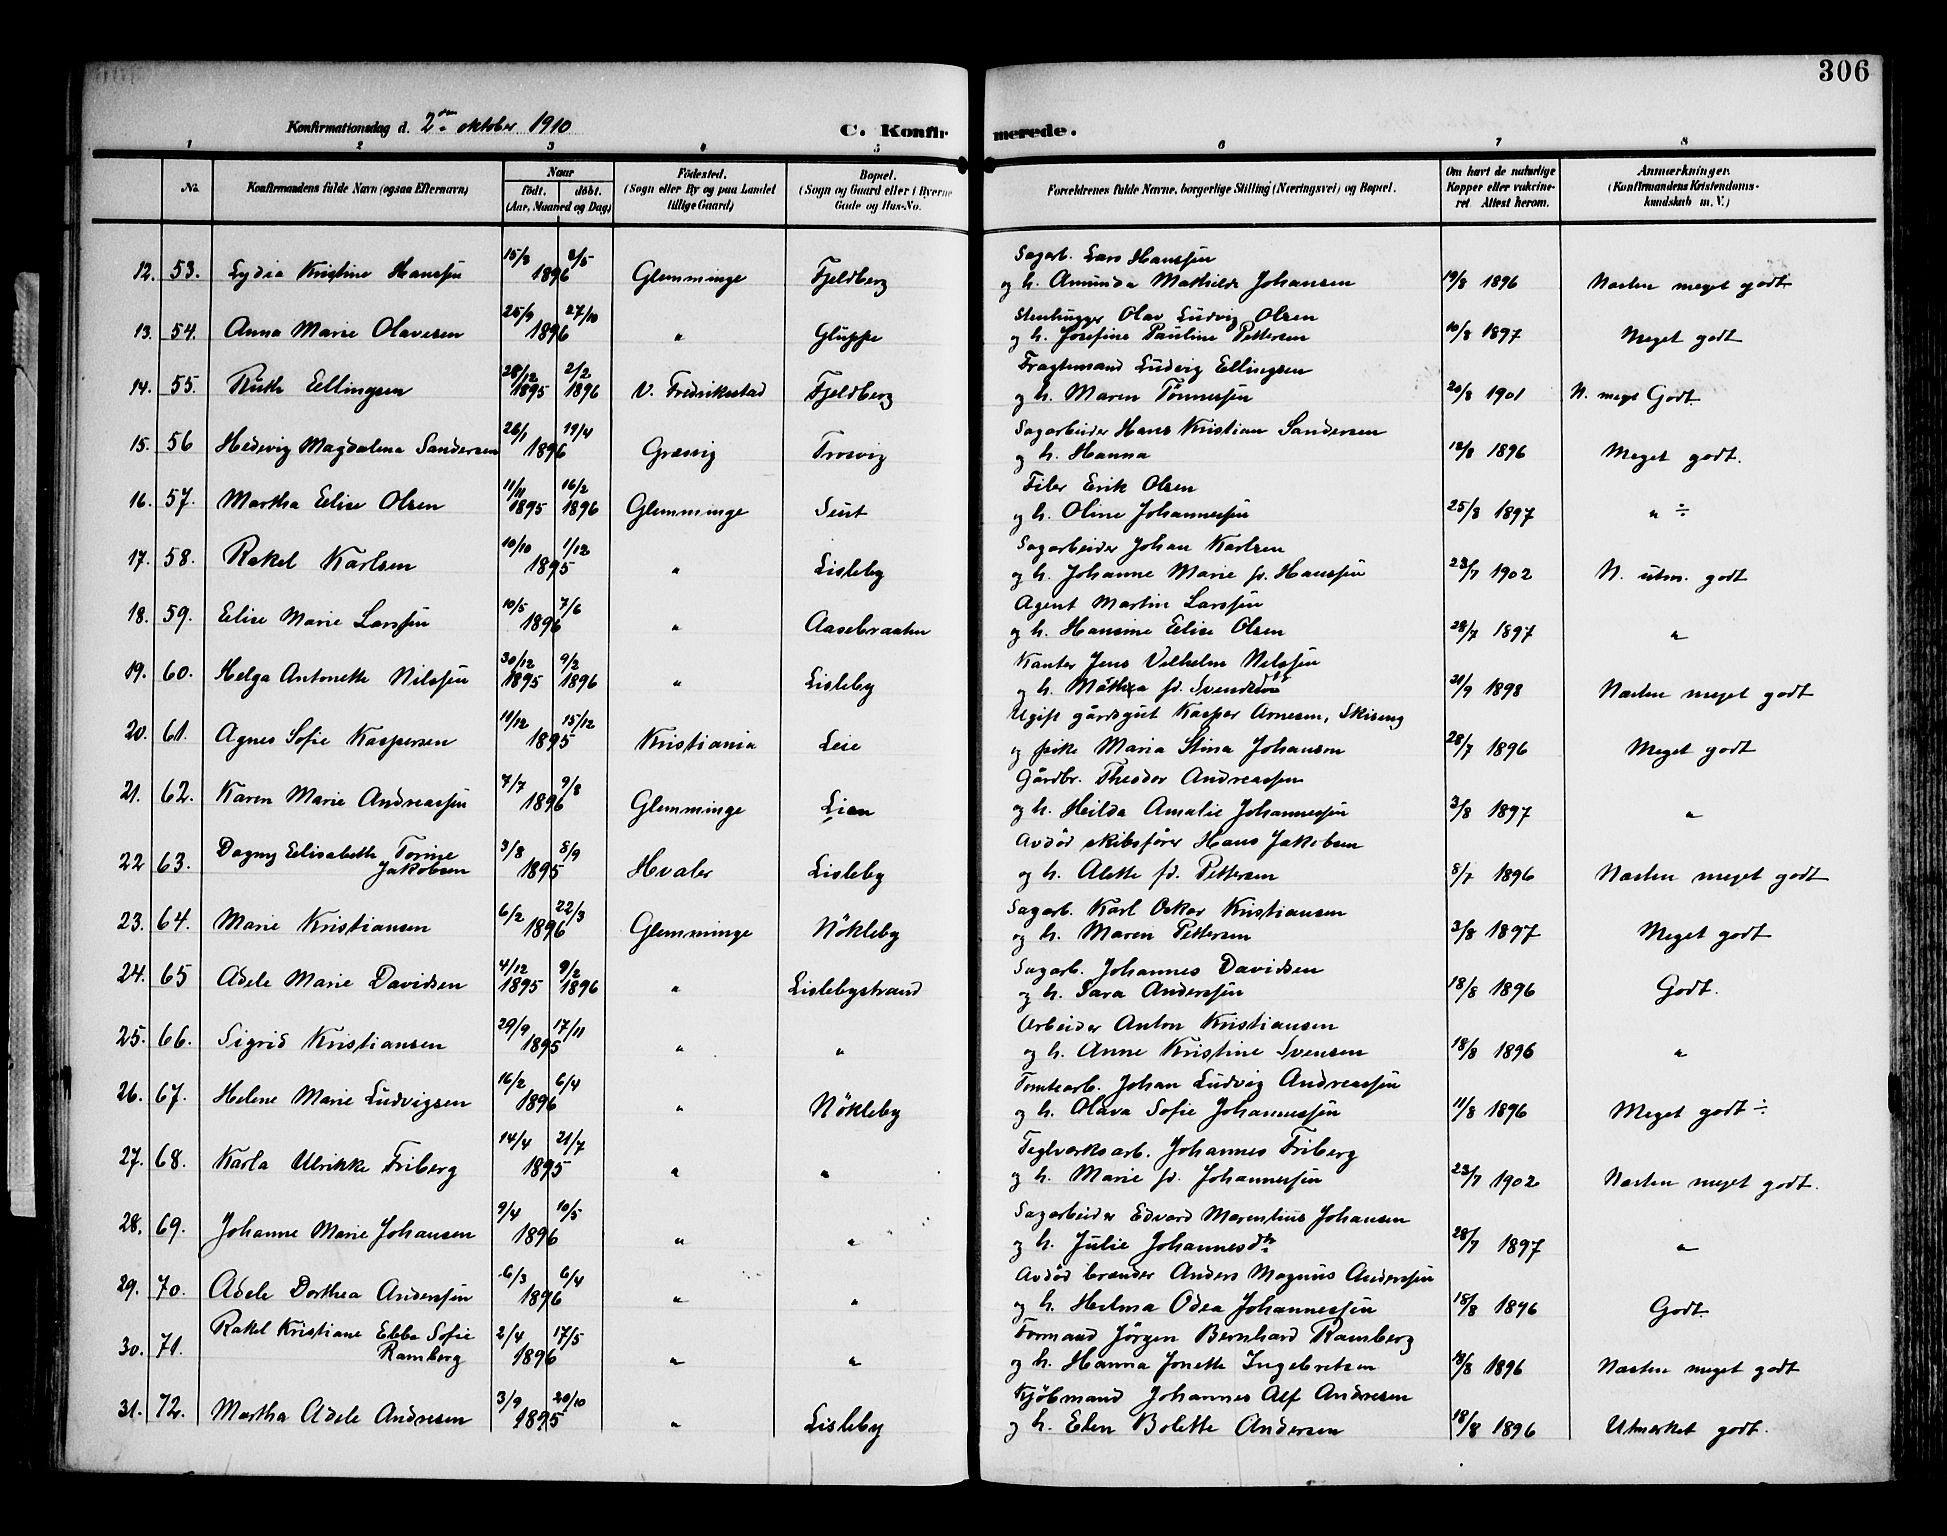 306
Konfirmationsdag d. 2den oktober 1910 C. Konfirmerede.
1 2 3 4 5 6 7 8
No. Konfirmandens fulde Navn (ogsaa Efternavn) Naar født. døbt. (Aar, Maaned og Dag) Fødested. (Sogn eller By og paa Landet tillige Gaard) Bopæl. (Sogn og Gaard eller i Byerne Gade og Hus-No. Forældrenes fulde Navne, borgerlige Stilling (Næringsvei) og Bopæl. Om havt de naturlige Kopper eller vakcineret Attest herom. Anmærkninger. (Konfirmandens Kristendomskundskab m. V.)
Sagarb. Lars Hanssen
12. 53. Lydia Kristine Hanssen 15/3 2/5 1896 Glemminge Fjeldberg og h. Amunda Mathilde Johansen 19/8 1896 Næsten meget godt
Stenhugger Olav Ludvig Olsen
13. 54. Anna Marie Olavesen 25/9 27/10 1896 " Gluppe og h. Josefine Pauline Pettersen 10/8 1897 Meget godt
Fragtemand Ludvig Ellingsen
14. 55. Ruth Ellingsen 28/12 1895 2/2 1896 V. Fredrikstad Fjeldberg og h. Maren Tønnessen 20/8 1901 N. meget Godt.
Sagarbeider Hans Kristian Sandersen
15. 56 Hedevig Magdalena Sandersen 26/1 19/4 1896 Græsvig Trosvig og h. Hanna 12/8 1896 Meget godt.
Filer Erik Olsen
16. 57. Martha Elise Olsen 11/11 1895 16/2 1896 Glemminge Seut og h. Oline Johannessen 25/8 1897 " ÷
Sagarbeider Johan Karlsen
17. 58. Rakel Karlsen 10/10 1/12 1895 " Lisleby og h. Johanne Marie fd. Hanssen 23/7 1902 N. utm. godt
Agent Martin Larssen
18. 59. Elise Marie Larssen 10/5 7/6 1896 " Aasebraaten og h. Hansine Elise Olsen 28/7 1897 "
Kanter Jens Vilhelm Nilssen
19. 60. Helga Antonette Nilssen 30/12 1895 9/2 1896 " Lisleby og h. Mathea fd. 21/9 1898 Næsten meget godt
Ugift gårdsgut Kasper Arnesen, Skiseng
20. 61. Agnes Sofie Kaspersen 11/12 15/12 1895 Kristiania Leie og pike Maria Stina Johanson 28/7 1896 Meget godt
Gårdbr. Theodor Andreassen
21. 62. Karen Marie Andreassen 7/7 9/8 1896 Glemminge Lien og h. Hilda Amalie Johannessen 3/8 1897 "
Avdød skibsfører Hans Jakobsen
22 63. Dagny Elisabeth Torine Jakobsen 3/8 8/9 1895 Hvaler Lisleby og h. Alette fd. Pettersen 8/7 1896 Næsten meget godt
Sagarb. Karl Oskar Kristiansen
23. 64. Marie Kristiansen 6/2 22/3 1896 Glemminge Nökleby og h. Maren Pettersen 3/8 1897 Meget godt
Sagarb. Johannes Davidsen
24. 65 Adele Marie Davidsen 4/12 1895 9/2 1896 " Lislebystrand og h. Sara Anderssen 18/8 1896 Godt.
Arbeider Anton Kristiansen
25. 66. Sigrid Kristiansen 29/9 17/11 1895 " " og h. Anne Kristine Svensen 18/8 1896 "
Tomtearb. Johan Ludvig Andreassen
26. 67. Helene Marie Ludvigsen 16/2 6/4 1896 " Nökleby og h. Olava Sofie Johannessen 11/8 1896 Meget godt ÷
Teglverksarb. Johannes Friberg
27. 68. Karla Ulrikke Friberg 14/4 21/7 1895 " " og h. Marie fd. Johannessen 23/7 1902 Næsten meget godt.
Sagarbeider Edvard Marentius Johansen
28. 69. Johanne Marie Johansen 9/4 10/5 1896 " " og h. Julie Johannesdtr 28/7 1897 "
Avdød brænder Anders Magnus Anderssen
29. 70. Adele Dorthea Anderssen 6/3 6/4 1896 " " og h. Helma Odea Johannessen 18/8 1896 Godt.
Formand Jörgen Bernhard Ramberg
30. 71. Rakel Kristiane Ebba Sofie Ramberg 2/4 17/5 1896 " " og h. Hanna Jonette Ingebretsen 18/8 1896 Næsten meget godt
Kjöbmand Johannes Alf Andresen
31. 72. Martha Adele Andresen 3/9 20/10 1895 " Lisleby og h. Elen Bolette Andersen 18/8 1896 Utmerket godt.